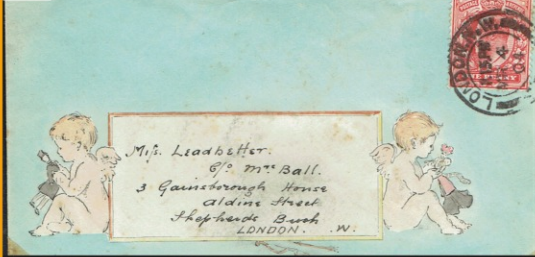 Miss. Leadbetter.
C/o Mrs Ball.
3 Gainsborough House
Aldine Street
Shepherds Bush
LONDON. .W.
LONDON. N.W.